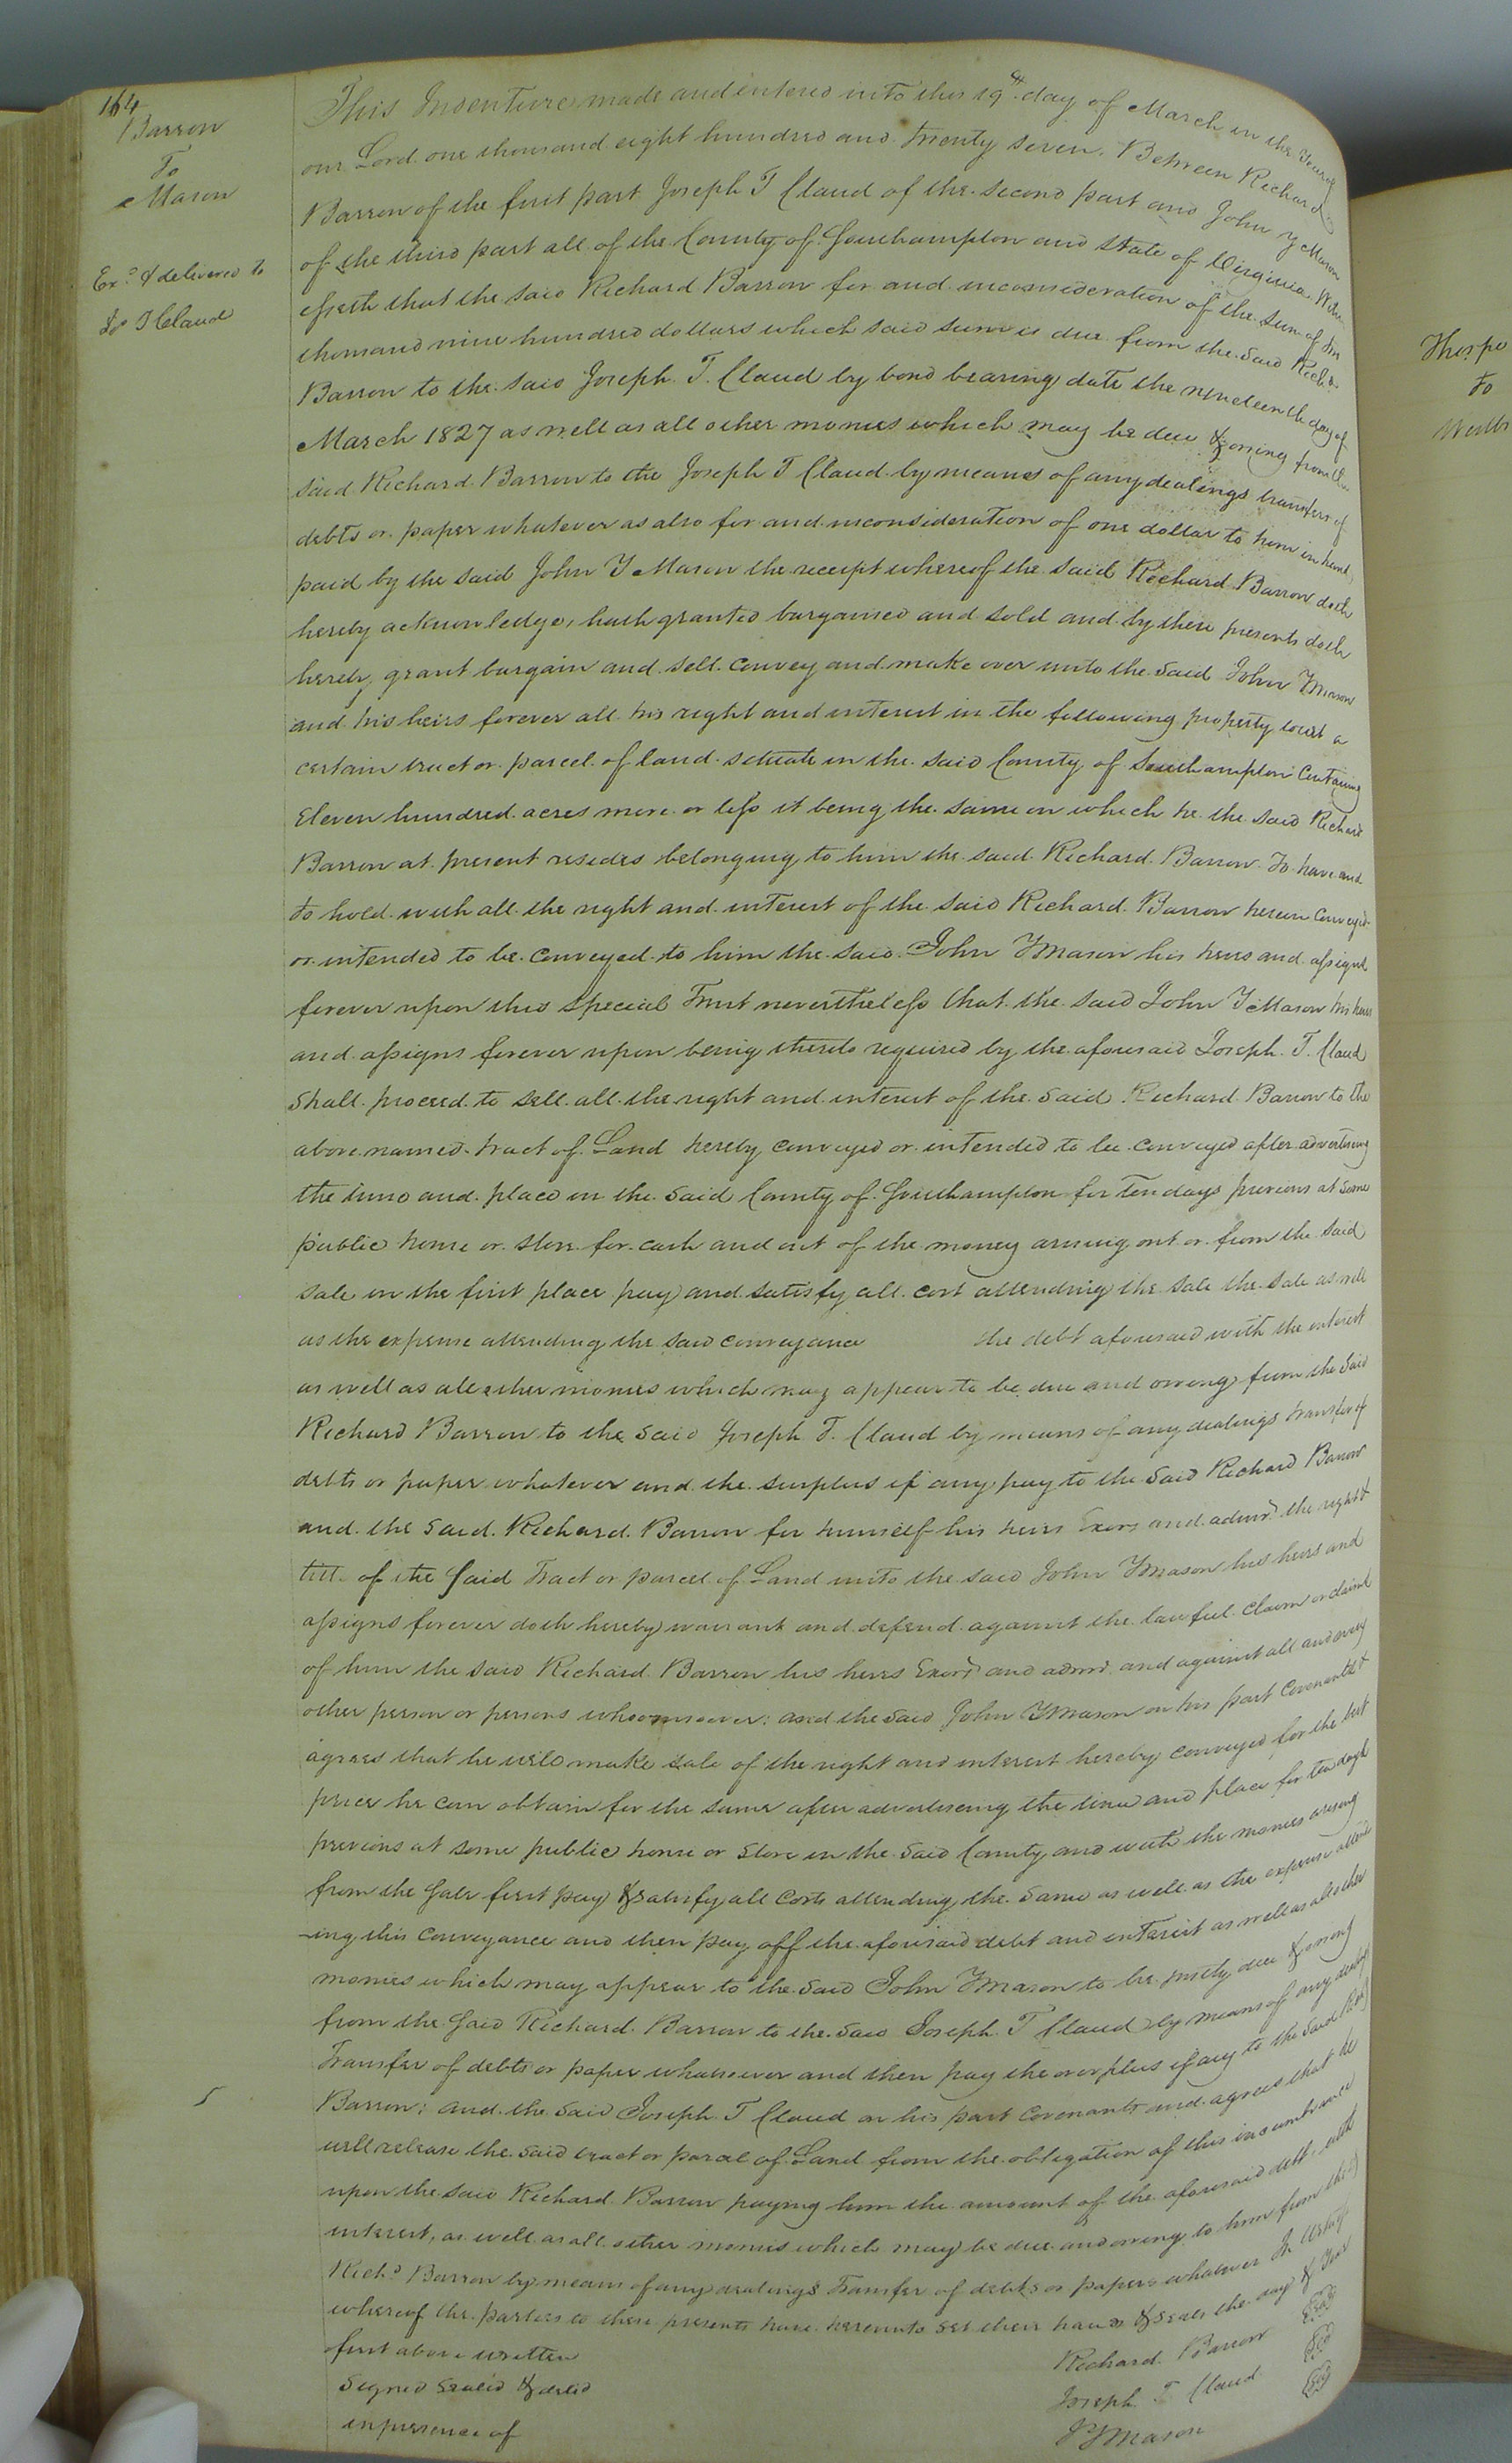 164
Barrow
To
Mason
Exd. & delivered to
Jos T Claud
This Indenture made and entered into this 19th. day of March in the year of
our Lord one thousand eight hundred and twenty seven. Between Richard
Barrow of the first part Joseph T Claud of the second part and John Y Mason
of the third part all of the County of Southampton and State of Virginia. Witn
esseth that the said Richard Barrow for and inconsideration of the sum of
thousand nine hundred dollars which said sum is due from the said Richd.
Barrow to the said Joseph T. Claud by bond bearing date the nineteenth day of
March 1827 as well as all other monies which may be due & owing from the
said Richard Barrow to the Joseph T Claud by means of any dealings transfers of
debts or paper whatever as also for and inconsideration of one dollar to him in hand
paid by the said John Y Mason the receipt whereof the said Richard Barrow doth
hereby acknowledge, hath granted bargained and sold and by these presents doth
hereby grant bargain and sell convey and make over unto the said John Y Mason
and his heirs forever all his right and interest in the following property towit a
certain tract or parcel of land situate in the said County of Southampton Containing
Eleven hundred acres more or less it being the same on which he the said Richard
Barrow at present resides belonging to him the said Richard Barrow. To have and
to hold with all the right and interest of the said Richard Barrow herein Conveyed
or intended to be Conveyed to him the said John Y Mason his heirs and assigns
forever upon this special Trust nevertheless that the said John Y Mason his heirs
and assigns forever upon being thereto required by the aforesaid Joseph T. Claud
shall proceed to sell all the right and interest of the said Richard Barrow to the
above named tract of Land hereby conveyed or intended to be conveyed after advertising
the time and place in the said County of Southampton for Ten days previous at some
public house or store for cash and out of the money arising out or from the said
sale in the first place pay and satisfy all cost attending the sale the sale as well
as the expense attending the said conveyance the debt aforesaid with the interest
as well as all other monies which may appear to be due and owing from the said
Richard Barrow to the said Joseph T. Claud by means of any dealings transfer of
debts or paper whatever and the surplus if any pay to the said Richard Barrow
and the said Richard Barrow for himself his heirs Exors and admrs. the right &
title of the said Tract or parcel of Land unto the said John Y Mason his heirs and
assigns forever doth hereby warrant and defend against the lawful claim or claims
of him the said Richard Barrow his heirs Exors and admrs. and against all and every
other person or persons whoomsoever: and the said John Y Mason on his part Covenants &
agrees that he will make sale of the right and interest hereby conveyed for the best
price he can obtain for the same after advertiseing the time and place for ten days
previous at some public house or Store in the said County and with the monies arising
from the sale first pay & satisfy all Costs attending the same as well as the expense attend
-ing this Conveyance and then pay off the aforesaid debt and interest as well as all other
monies which may appear to the said John Y Mason to be justly due & owing
from the said Richard Barrow to the said Joseph T Claud by means of any dealings
Transfer of debts or paper whatsoever and then pay the overplus if any to the said Richd
Barrow: and the said Joseph T Claud on his part Covenants and agrees that he
will release the said tract or parcel of Land from the obligation of this incumbrance
upon the said Richard Barrow paying him the amount of the aforesaid debt with
interest, as well as all other monies which may be due and owing to him from the sd
Richd. Barrow by means of any dealings Transfer of debts or papers whatever In Witness
whereof the parties to these presents have hereunto set their hands & seals the day & year
first above written
Signed sealed & deld
in presence of
Richard Barrow Seal
Joseph T Claud Seal
J Y Mason Seal
Thorpe
To